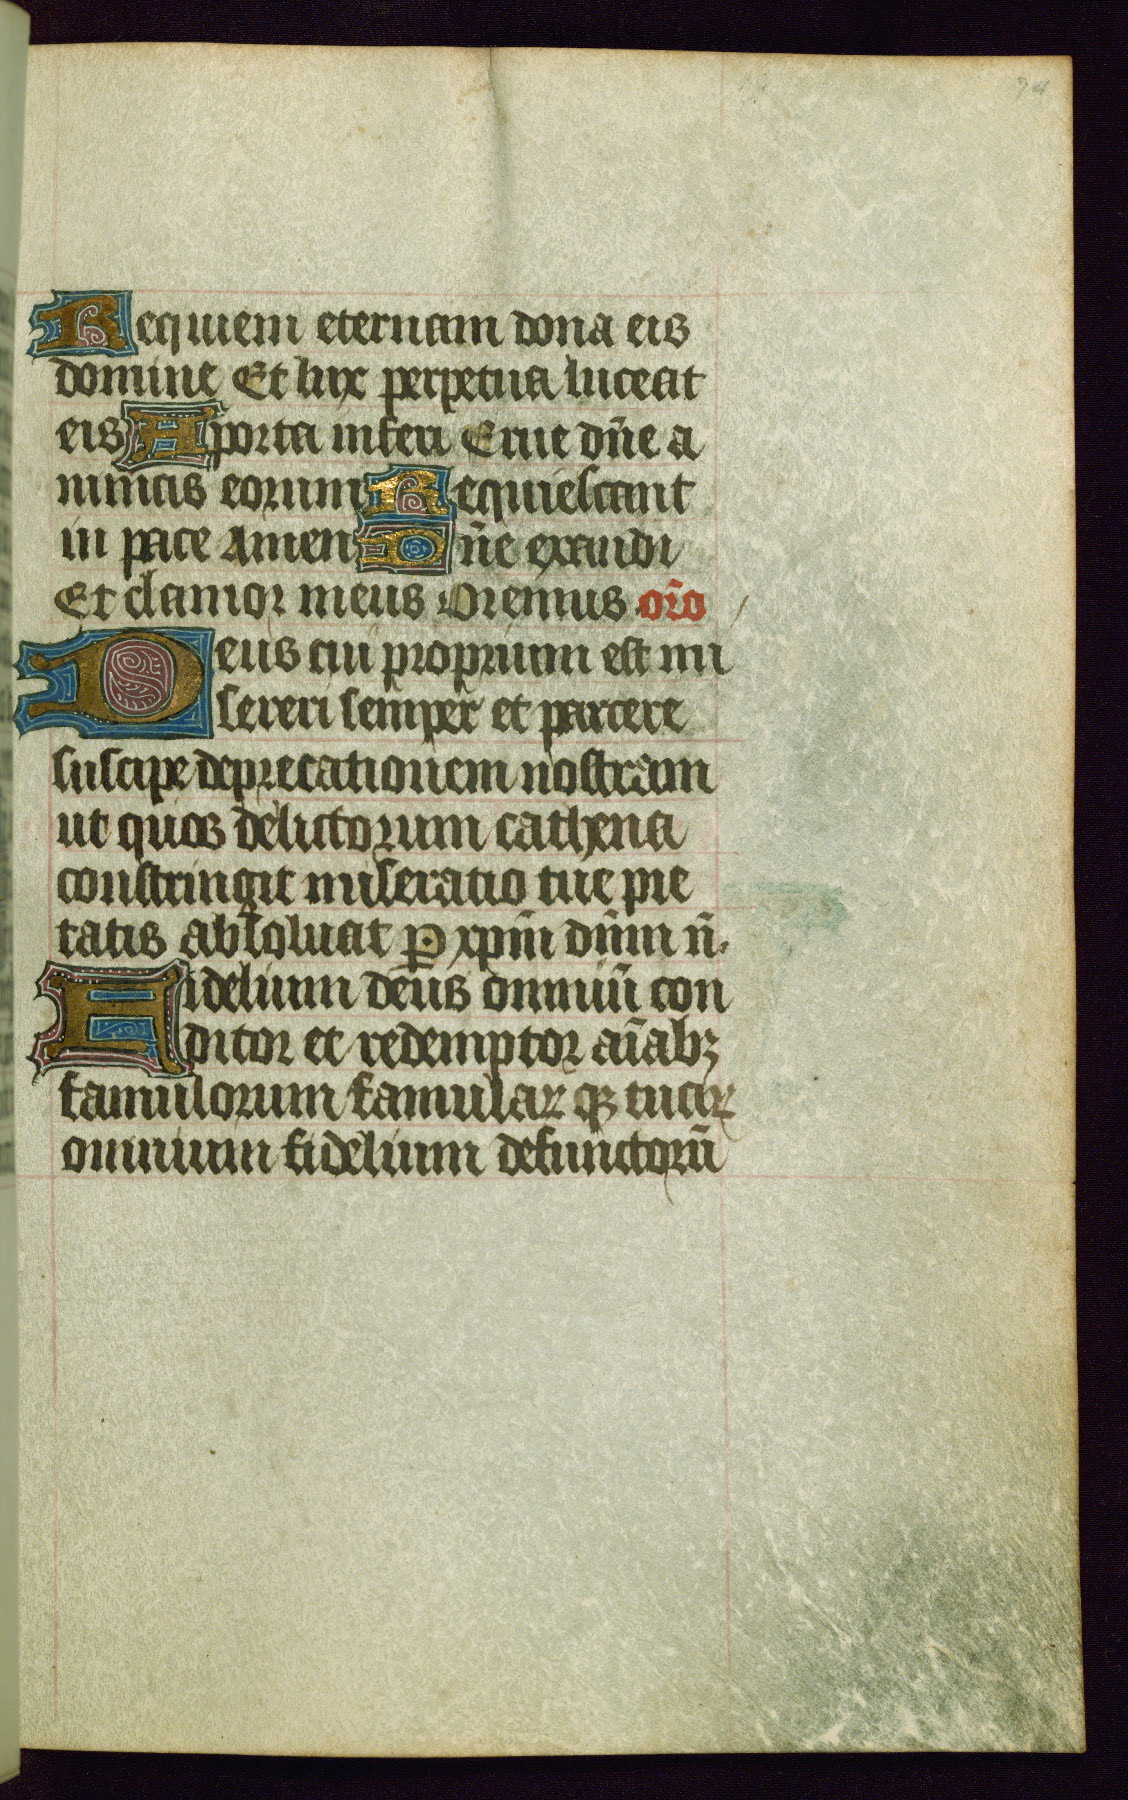 Requiem eternam dona eis
domine Et lux perpetua luceat
eis A porta inferi Erue dn̄e a
nimas eorum Requiescant
in pace Amen Dn̄e exaudi
Et clamor meus Oremus or̄o
Deus cui proprium est mi
sereri semper et parcere
suscipe deprecationem nostram
ut quos delictorum cathena
constringit miseratio tue pie
tatis absoluat p xp̄m dn̄m n̄.
Fidelium deus omniū con
ditor et redemptor aīabꝫ
famulorum famularꝝ qꝫ tuarꝝ
omnium fidelium defunctorū